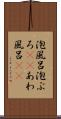 泡風呂泡ぶ
ろあわ
風呂